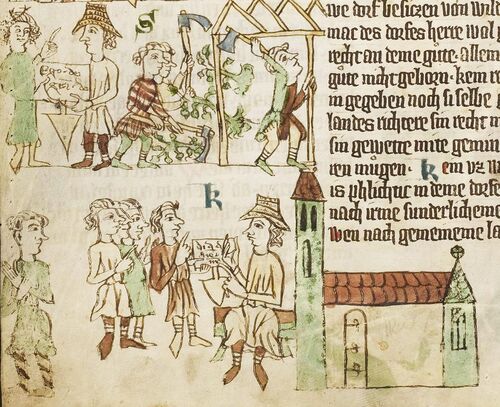 S
we dorf besiczen von wild
mac des dorfes herre wol
recht an deme gute. allein
gute nicht geborn. kein
in gegeben noch si selbe
landes richtere sin recht
sin gewette mite
ren mugen. kein vz
is phlichtic in deme dorfe
nach irme sunderlicheme
wen nach gemeineme la
k